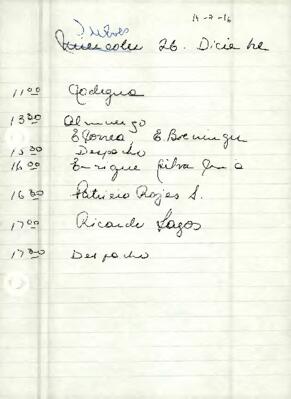 14-2-16
Jueves
Miercoles 26. Diciembre
11 00 Codegua
13 30 Almuerzo
E Correa E. Boeninger
15 30 Despacho
16 00 Enrique Silva Cima
16 30 Patricio Rojas S.
17 00 Ricardo Lagos
17 30 Despacho